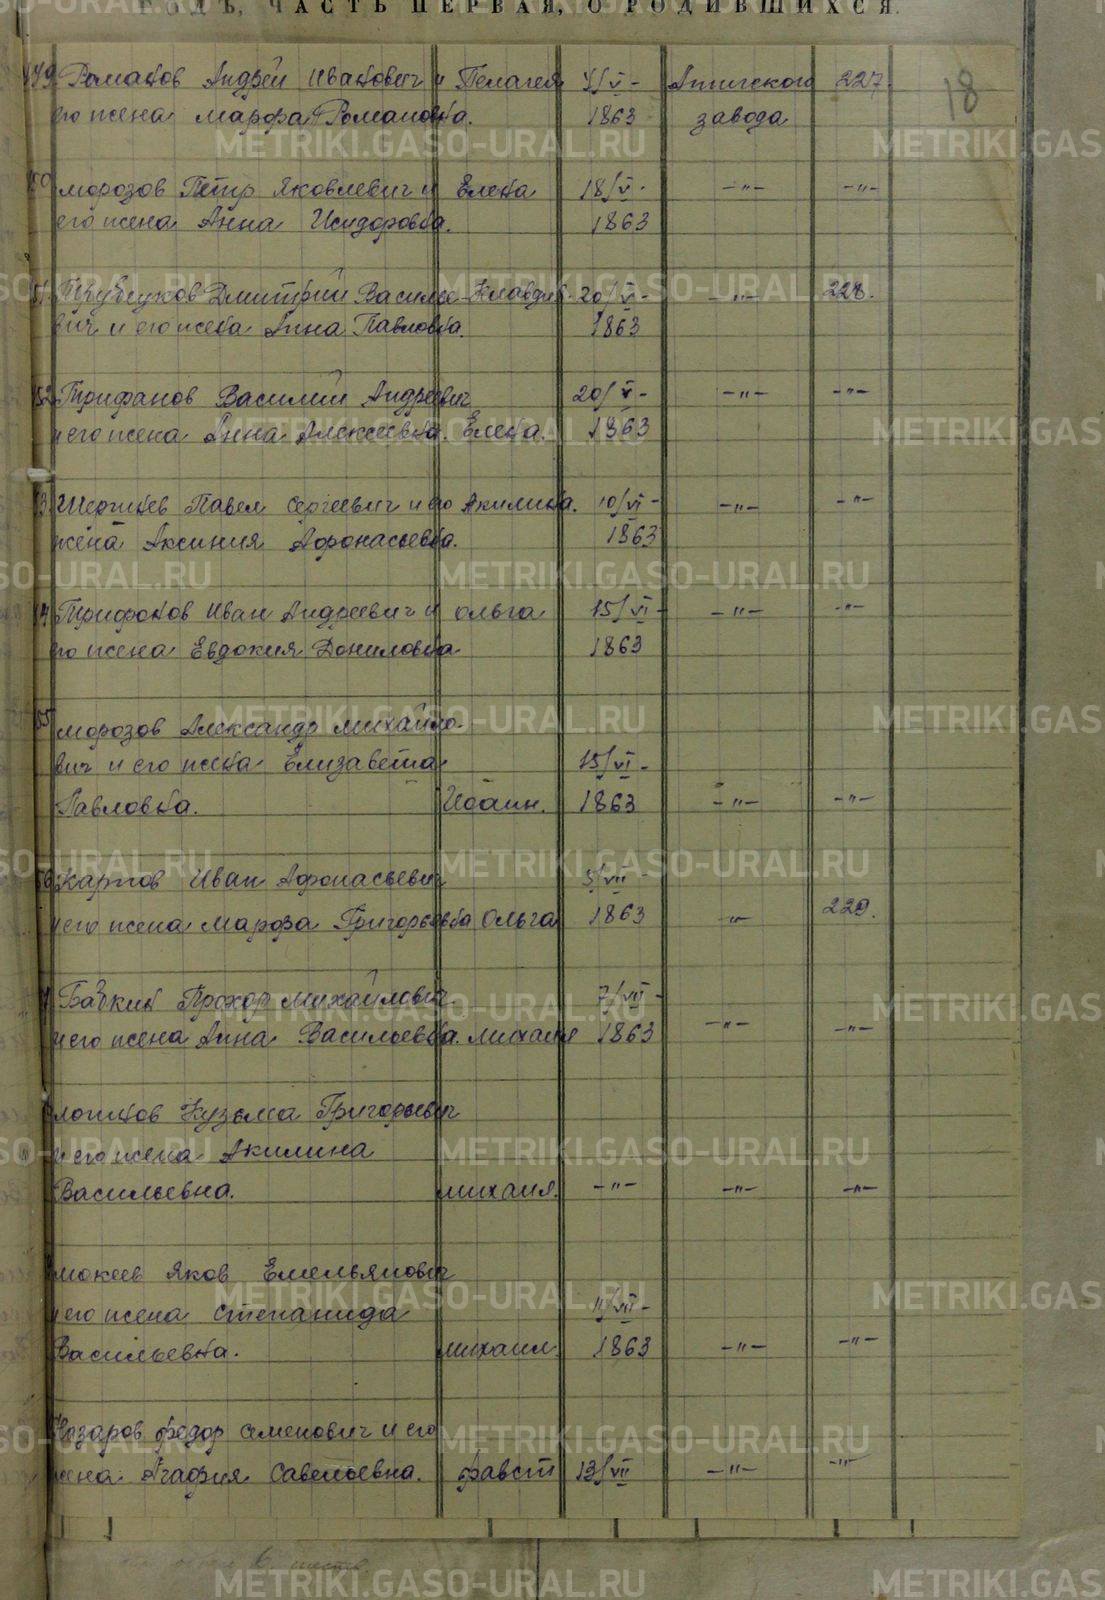 ГОДЪ, ЧАСТЬ ПЕРВАЯ, О РОДИВШИХСЯ.
18
149 Романов Андрей Иванович и Пелагея 4/V - Атигского 227.
его жена Марфа Романовна. 1863 завода
50 Морозов Петр Яковлевич и Елена 18/V - -"- -"-
его жена Анна Исидоровна. 1863
51 Трубеуков Дмитрий Василье- Клавдия 20/V - -"- 228.
вич и его жена Анна Павловна. 1863
52 Трифанов Василий Андреевич 20/V - -"- -"-
и его жена Анна Алексеевна. Елена. 1863
3 Павел Сергеевич и его Акилина. 10/VI - -"- -"-
жена Аксиния Афонасьевна. 1863
4 Трифонов Иван Андреевич и Ольга 15/VI - -"- -"-
его жена Евдокия Даниловна 1863
55 Морозов Александр Михайло-
вич и его жена Елизавета 15/VI -
Павловна. Иоанн. 1863 -"- -"-
56 Карпов Иван Афонасьевич 5/VII
и его жена Марфа Григорьевна Ольга 1863 -"- 229.
Бабкин Прохор Михайлович 7/VII -
и его жена Анна Васильевна. Михаил 1863 -"- -"-
Лопатков Кузьма Григорьевич
и его жена Акилина
Васильевна. Михаил. -"- -"- -"-
Мокеев Яков Емельянович
и его жена Степанида 11/VII -
Васильевна. Михаил. 1863 -"- -"-
Назаров Федор Семенович и его
жена Агафия Савельевна. Фавст 13/VII -"- -"-
METRIKI.GASO-URAL.RU